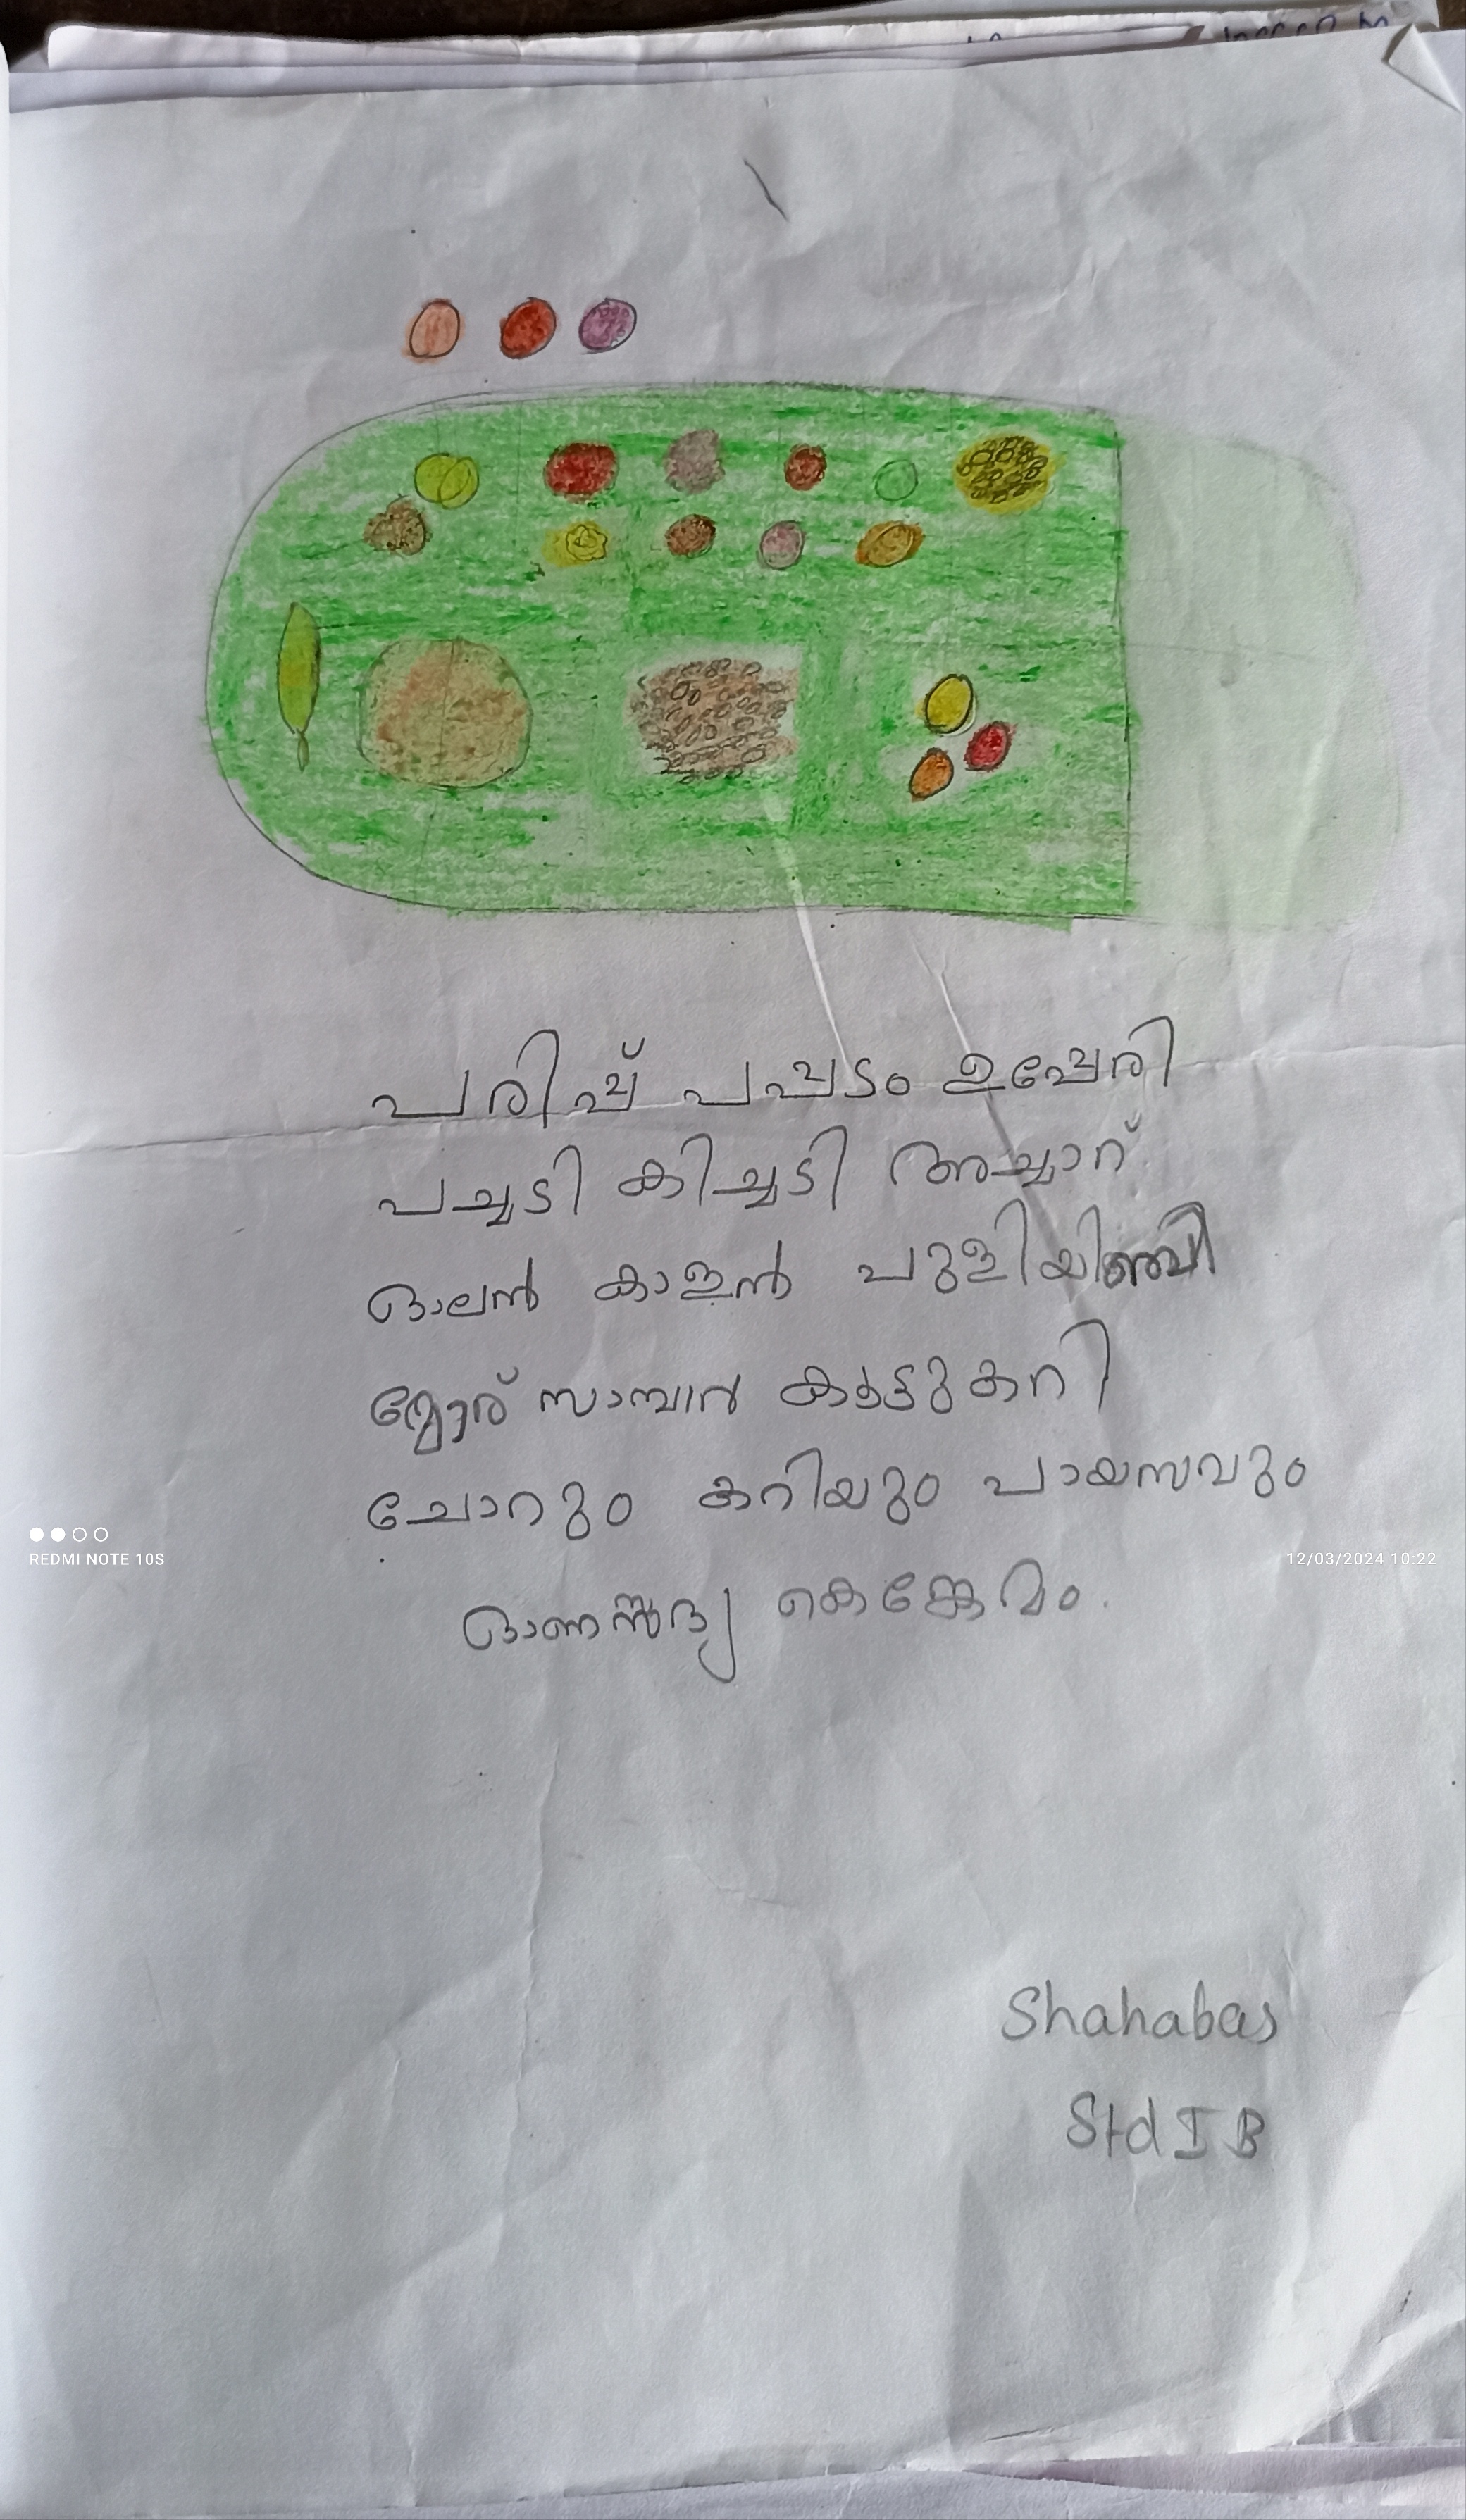 പരിപ്പ് പപ്പടം ഉപ്പേരി
പച്ചടി കിച്ചടി അച്ചാറ്
ഓലൻ കാളൻ പുളിയിഞ്ചി
മോര് സാമ്പാർ കൂട്ടുകറി
ചോറും കറിയും പായസവും
REDMI NOTE 10S
12/03/2024 10:22
ഓണസദ്യ കെങ്കേമം.
Shahabas
Std I B